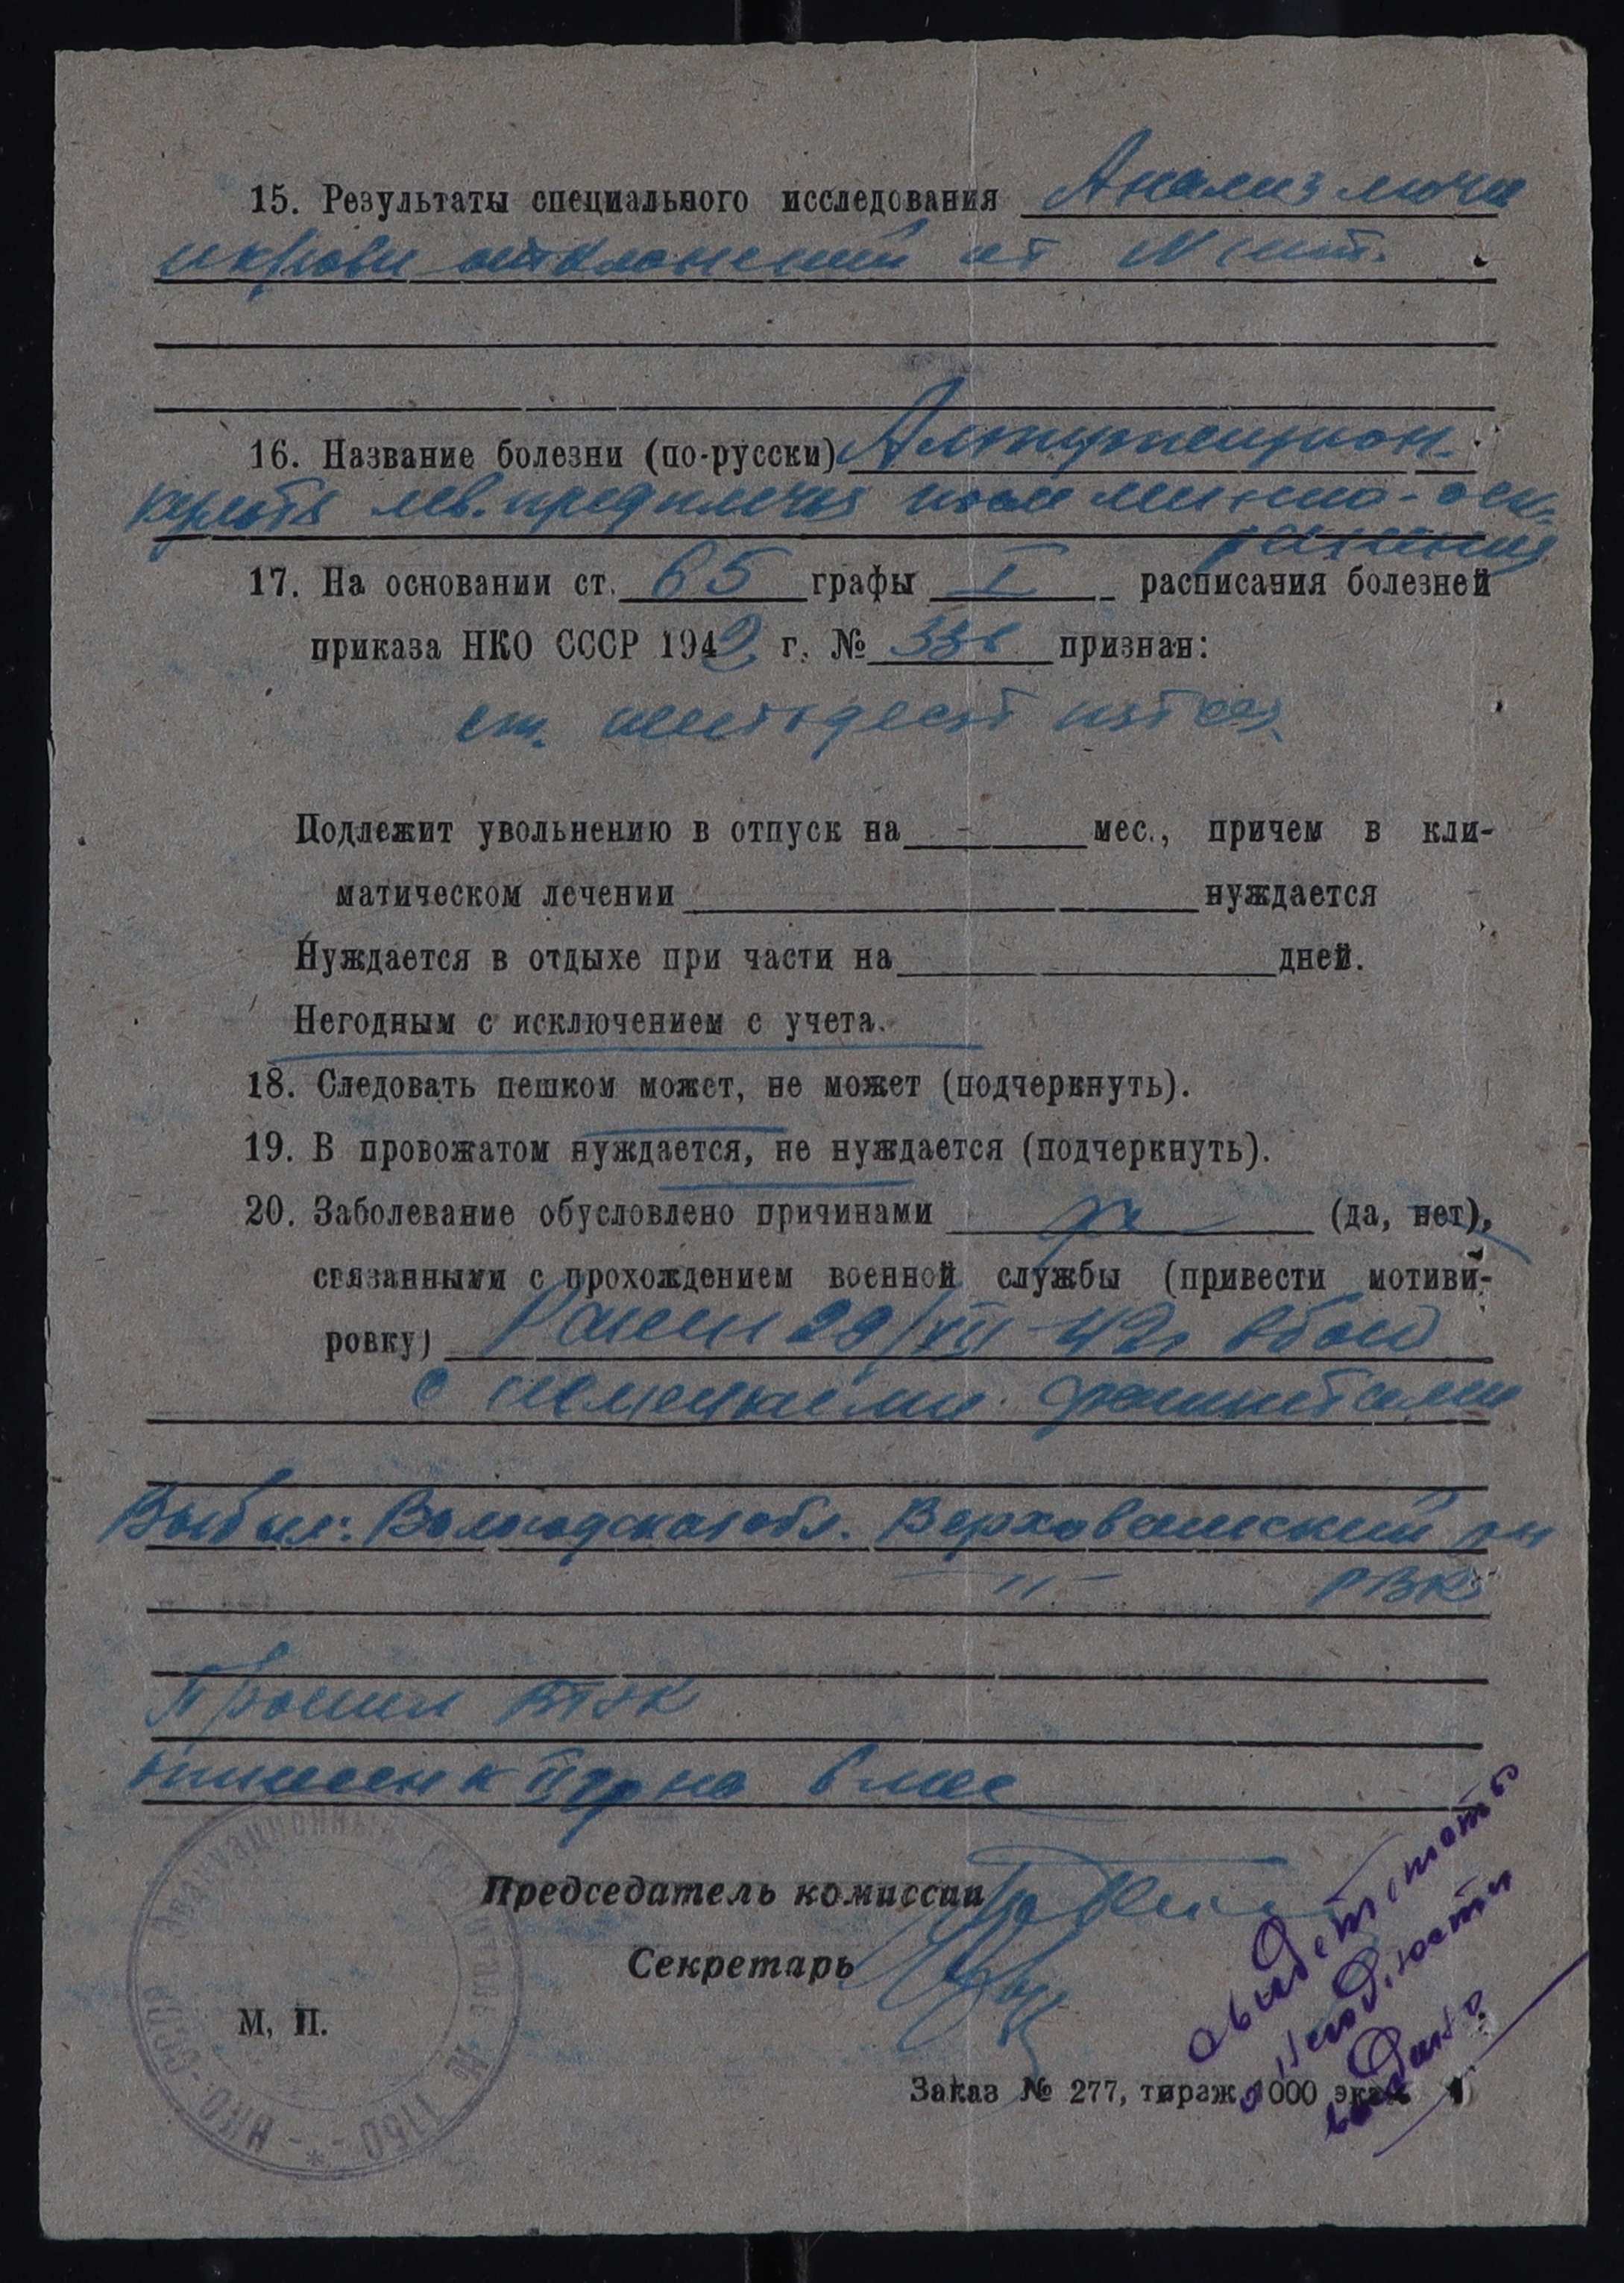 15. Результаты специального исследования Анализ мочи
и крови отклонений от N нет.
16. Название болезни (по-русски) Ампутацион.
культя лев. предплечья после минно-оск.
ранения
17. На основании ст. 65 графы I расписания болезней
приказа НКО СССР 1942 г. № 336 признан:
ст. шестьдесят пятая
Подлежит увольнению в отпуск на - мес., причем в кли-
матическом лечении нуждается
Нуждается в отдыхе при части на дней.
Негодным с исключением с учета.
18. Следовать пешком может, не может (подчеркнуть).
19. В провожатом нуждается, не нуждается (подчеркнуть).
20. Заболевание обусловлено причинами да (да, нет),
связанными с прохождением военной службы (привести мотиви-
ровку) Ранен 29/XII-42г в бою
с немецкими фашистами
Выбыл: Вологодская обл. Верховажский р-н
—"— РВК
Прошел ВТЭК
отнесен к II гр на 6 мес
Председатель комиссии
Секретарь
М. П.
Эвакуационный госпиталь № 1150 - * - НКО-СССР
Свидетельство
о негодности
выдано
Заказ № 277, тираж 1000 экз.